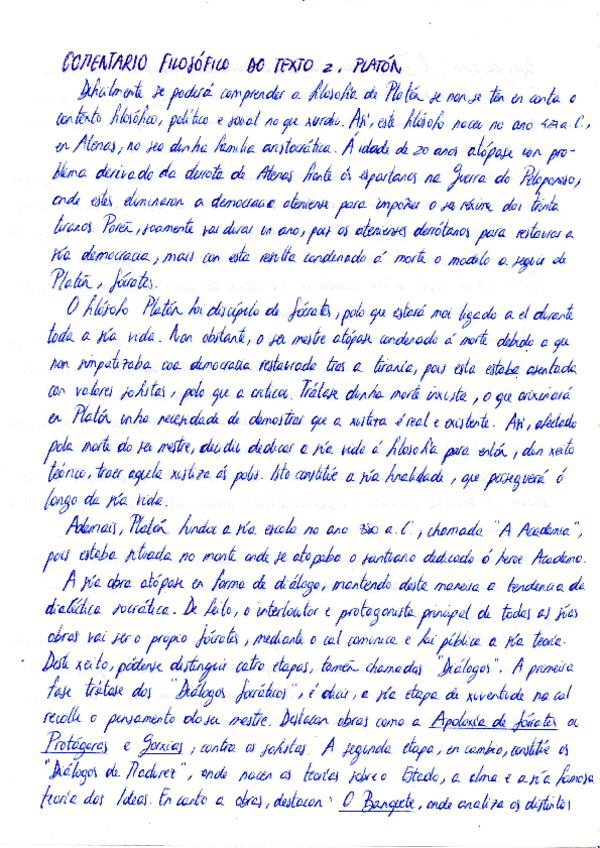 COMENTARIO FILOSÓFICO DO TEXTO 2. PLATÓN
Dificilmente se poderá comprender a filosofía de Platón se non se tén en conta o
contexto filosófico, político e social no que xurdiu. Así, este filósofo naceu no ano 427 a.C.,
en Atenas, no seo dunha familia aristocrática. Á idade de 20 anos atópase cun pro-
blema derivado da derrota de Atenas fronte ós espartanos na Guerra do Peloponeso,
onde estes eliminaron a democracia ateniense para impoñer o seu réxime dos trinta
tiranos. Porén, soamente vai durar un ano, pois os atenienses derrótanos para restaurar a
súa democracia, mais con esta resulta condenado á morte o modelo a seguir de
Platón, Sócrates.
O filósofo Platón foi discípulo de Sócrates, polo que estará moi ligado a el durante
toda a súa vida. Non obstante, o seu mestre atópase condenado á morte debido a que
non simpatizaba coa democracia restaurada tras a tiranía, pois esta estaba asentada
con valores sofistas, polo que a criticou. Trátase dunha morte inxusta, o que orixinará
en Platón unha necesidade de demostrar que a xustiza é real e existente. Así, afectado
pola morte do seu mestre, decidiu dedicar a súa vida á filosofía para entón, dun xeito
teórico, traer aquela xustiza ás polis. Isto constitúe a súa finalidade, que perseguerá ó
longo da súa vida.
Ademais, Platón fundou a súa escola no ano 380 a.C., chamada "A Academia",
pois estaba situada no monte onde se atopaba o santuario dedicado ó heroe Academo.
A súa obra atópase en forma de diálogo, mantendo desta maneira a tendencia da
dialéctica socrática. De feito, o interlocutor e protagonista principal de todas as súas
obras vai ser o propio Sócrates, mediante o cal comunica e fai pública a súa teoría.
Deste xeito, pódense distinguir catro etapas, tamén chamadas "Diálogos". A primeira
fase trátase dos "Diálogos Socráticos", é dicir, a súa etapa de xuventude na cal
recolle o pensamento do seu mestre. Destacan obras como a Apoloxía de Sócrates ou
Protágoras e Gorxias, contra os sofistas. A segunda etapa, en cambio, constitúe os
"Diálogos de Madurez", onde nacen as teorías sobre o Estado, a alma e a súa famosa
teoría das Ideas. En canto a obras, destacan: O Banquete, onde analiza os distintos